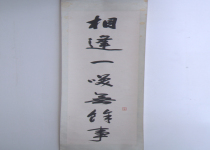 相逢一笑無餘事